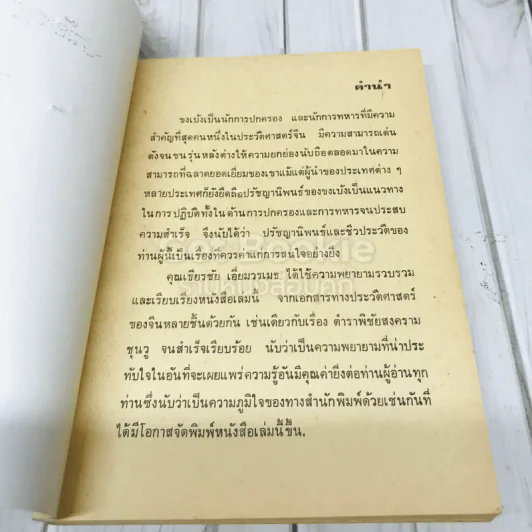 คำนำ
ขงเบ้งเป็นนักการปกครอง และนักการทหารที่มีความ
สำคัญที่สุดคนหนึ่งในประวัติศาสตร์จีน มีความสามารถเด่น
ดังจนชนรุ่นหลังต่างให้ความยกย่องนับถือตลอดมาในความ
สามารถที่ฉลาดยอดเยี่ยมของเขาแม้แต่ผู้นำของประเทศต่าง ๆ
หลายประเทศก็ยังยึดถือปรัชญานิพนธ์ของขงเบ้งเป็นแนวทาง
ในการปฏิบัติทั้งในด้านการปกครองและการทหารจนประสบ
ความสำเร็จ จึงนับได้ว่า ปรัชญานิพนธ์และชีวประวัติของ
ท่านผู้นี้เป็นเรื่องที่ควรค่าแก่การสนใจอย่างยิ่ง
คุณเธียรชัย เอี่ยมวรเมธ ได้ใช้ความพยายามรวบรวม
และเรียบเรียงหนังสือเล่มนี้ จากเอกสารทางประวัติศาสตร์
ของจีนหลายชิ้นด้วยกัน เช่นเดียวกับเรื่อง ตำราพิชัยสงคราม
ซุนวู จนสำเร็จเรียบร้อย นับว่าเป็นความพยายามที่น่าประ
ทับใจในอันที่จะเผยแพร่ความรู้อันมีคุณค่ายิ่งต่อท่านผู้อ่านทุก
ท่านซึ่งนับว่าเป็นความภูมิใจของทางสำนักพิมพ์ด้วยเช่นกันที่
ได้มีโอกาสจัดพิมพ์หนังสือเล่มนี้ขึ้น.